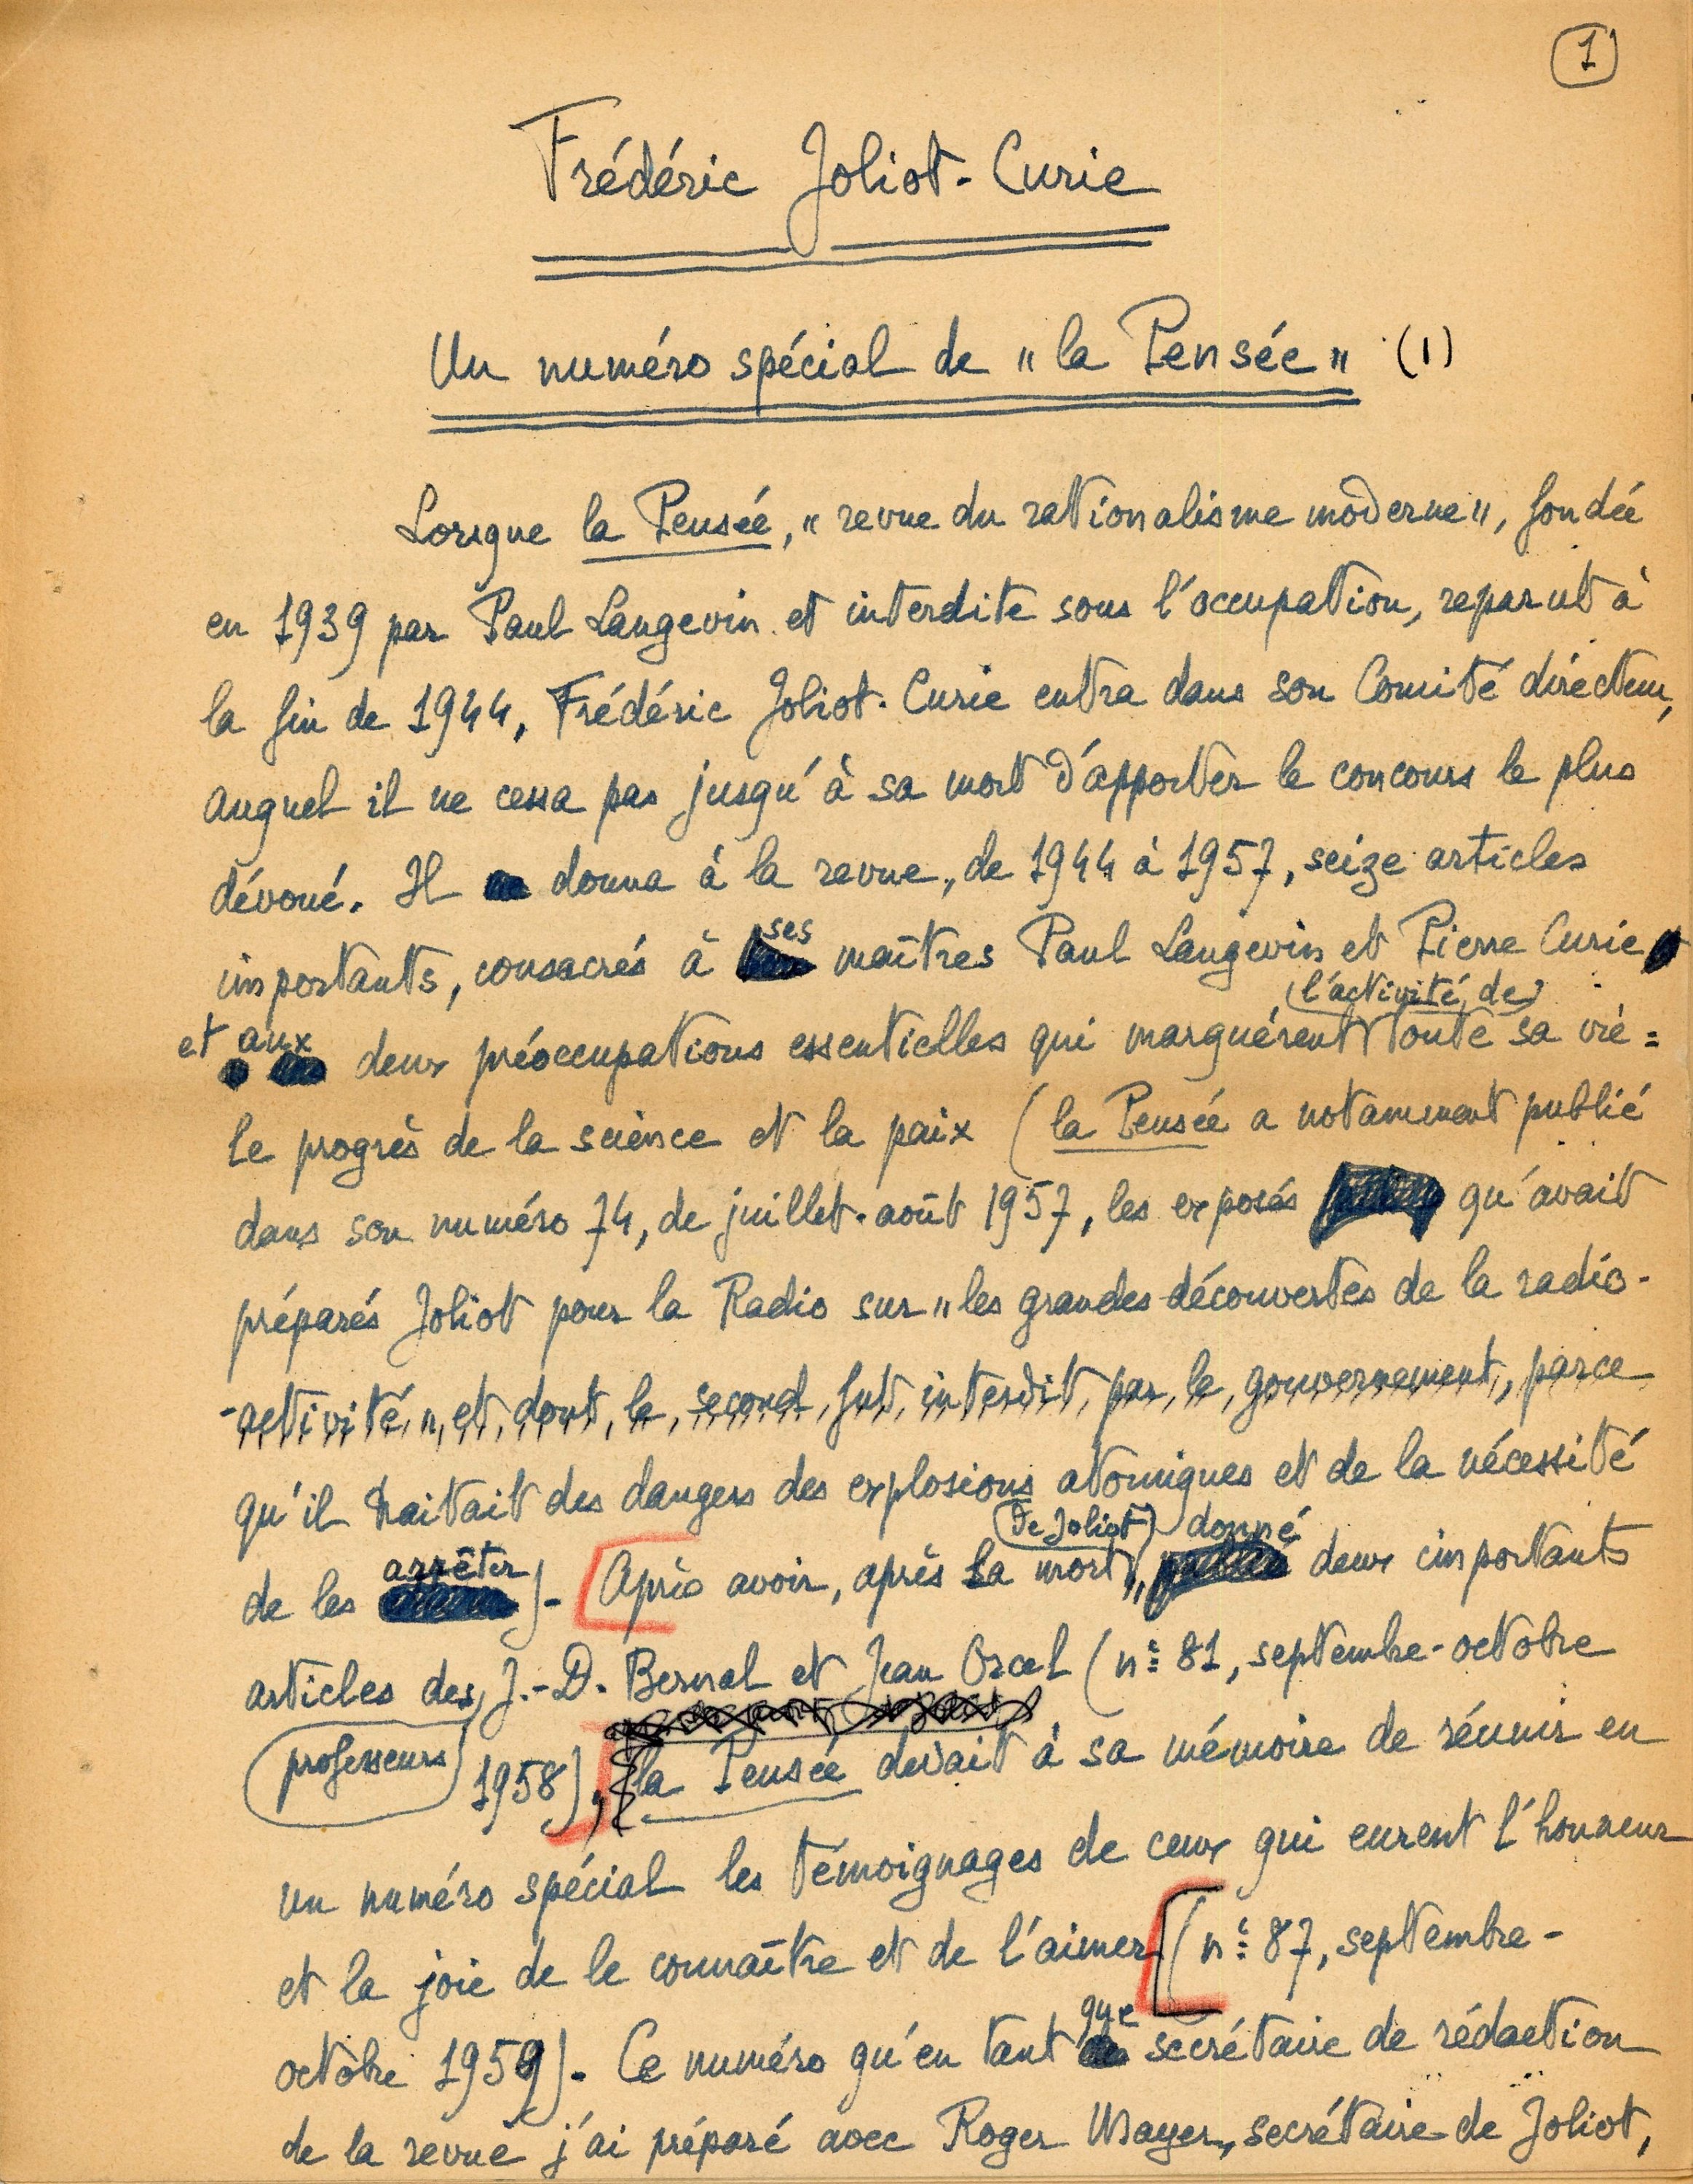 1
Frédéric Joliot-Curie
Un numéro spécial de "la Pensée" (1)
Lorsque la Pensée, "revue du rationalisme moderne", fondée
en 1939 par Paul Langevin et interdite sous l'occupation, reparut à
la fin de 1944, Frédéric Joliot-Curie entra dans son Comité directeur,
auquel il ne cessa pas jusqu'à sa mort d'apporter le concours le plus
dévoué. Il donna à la revue, de 1944 à 1957, seize articles
importants, consacrés à ses maîtres Paul Langevin et Pierre Curie
et aux deux préoccupations essentielles qui marquèrent l'activité de toute sa vie :
le progrès de la science et la paix (la Pensée a notamment publié
dans son numéro 74, de juillet-août 1957, les exposés qu'avait
préparés Joliot pour la Radio sur "les grandes découvertes de la radio-
-activité", et dont le second fut interdit par le gouvernement, parce
qu'il traitait des dangers des explosions atomiques et de la nécessité
de les arrêter). Après avoir, après la mort de Joliot, donné deux importants
articles des professeurs J.-D. Bernal et Jean Orcel (n° 81, septembre-octobre
1958), la Pensée devait à sa mémoire de réunir en
un numéro spécial les témoignages de ceux qui eurent l'honneur
et la joie de le connaître et de l'aimer (n° 87, septembre-
octobre 1959). Ce numéro qu'en tant que secrétaire de rédaction
de la revue j'ai préparé avec Roger Mayer, secrétaire de Joliot,